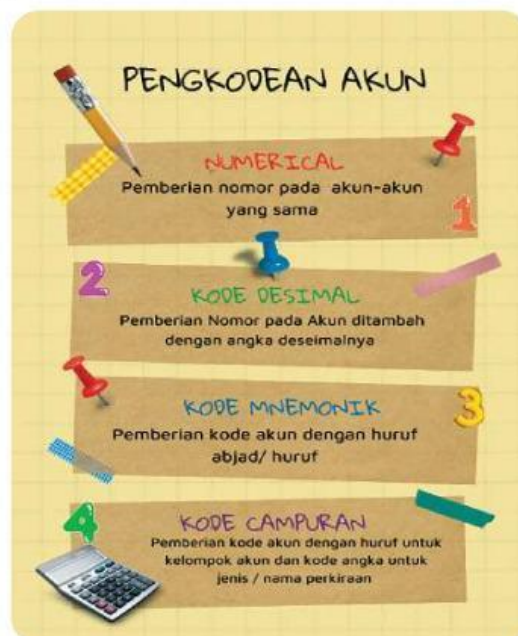 PENGKODEAN AKUN
NUMERICAL
Pemberian nomor pada akun-akun
yang sama
1
2
KODE DESIMAL
Pemberian Nomor pada Akun ditambah
dengan angka deseimalnya
KODE MNEMONIK
3
Pemberian kode akun dengan huruf
abjad/ huruf
4
KODE CAMPURAN
Pemberian kode akun dengan huruf untuk
kelompok akun dan kode angka untuk
jenis / nama perkiraan